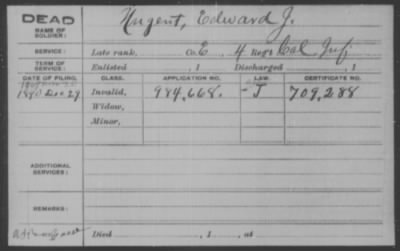 DEAD
NAME OF SOLDIER: Nugent, Edward J.
SERVICE: Late rank, Co. E, 4 Reg't Cal Inf.
TERM OF SERVICE: Enlisted , 1 Discharged , 1
DATE OF FILING. CLASS. APPLICATION NO. LAW. CERTIFICATE NO.
1890 Dec 29 Invalid, 984,668. J 709,288
Widow,
Minor,
ADDITIONAL SERVICES:
REMARKS:
Died , 1 , at